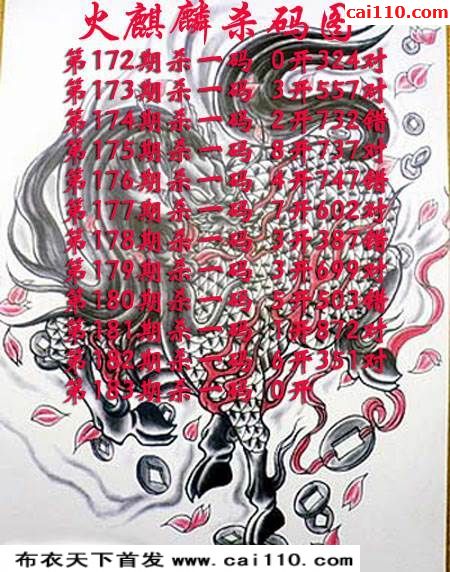 cai110.com
火麒麟杀码图
第172期杀一码 0开324对
第173期杀一码 3开557对
第174期杀一码 2开732错
第175期杀一码 8开737对
第176期杀一码 4开747错
第177期杀一码 7开602对
第178期杀一码 3开387错
第179期杀一码 3开699对
第180期杀一码 5开503错
第181期杀一码 1开872对
第182期杀一码 6开351对
第183期杀一码 0开
布衣天下首发 www.cai110.com